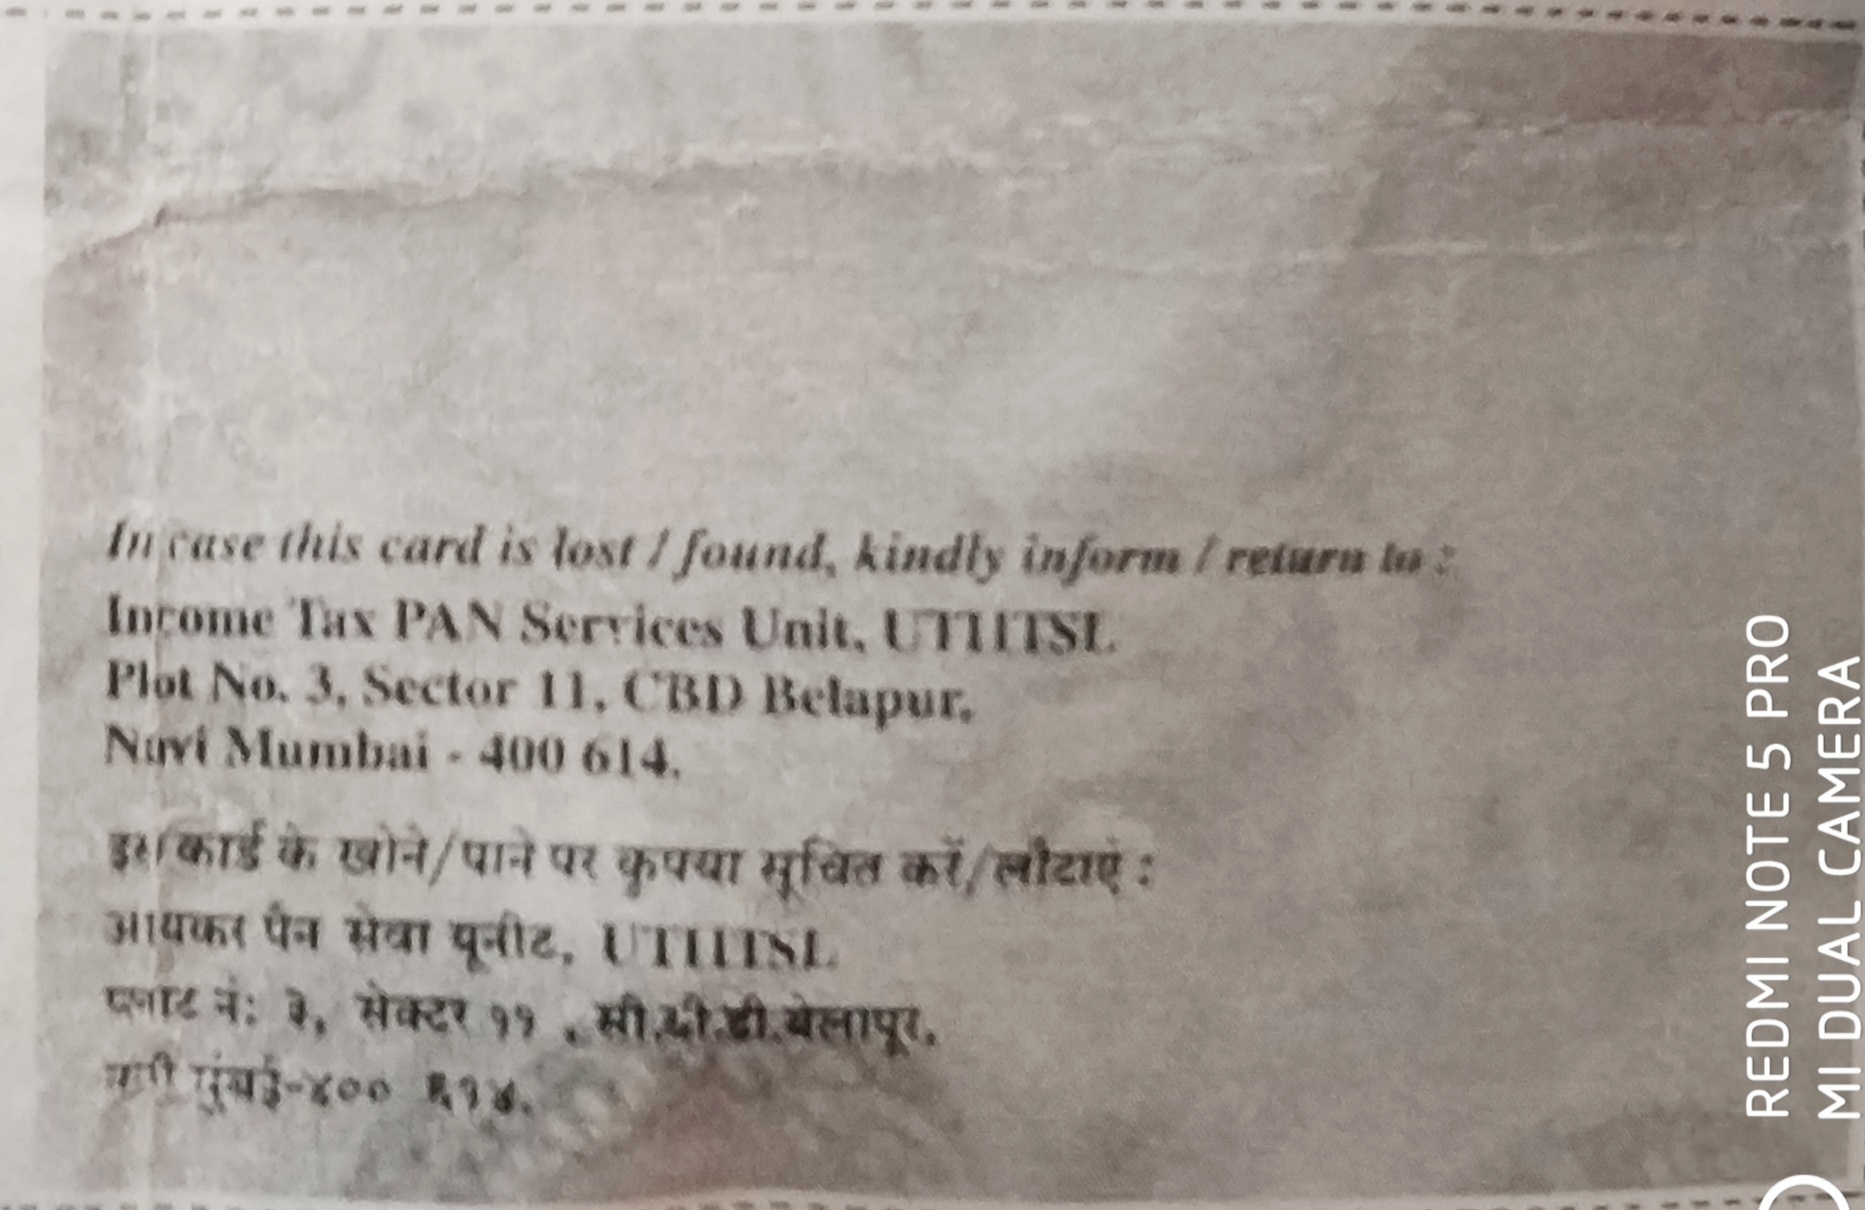 In case this card is lost / found, kindly inform / return to :
Income Tax PAN Services Unit, UTIITSL
Plot No. 3, Sector 11, CBD Belapur,
Navi Mumbai - 400 614.
इस कार्ड के खोने/पाने पर कृपया सूचित करें/लौटाएं :
आयकर पैन सेवा यूनीट, UTIITSL
प्लाट नं: ३, सेक्टर ११ , सी.बी.डी.बेलापूर,
नवी मुंबई-४०० ६१४.
REDMI NOTE 5 PRO
MI DUAL CAMERA